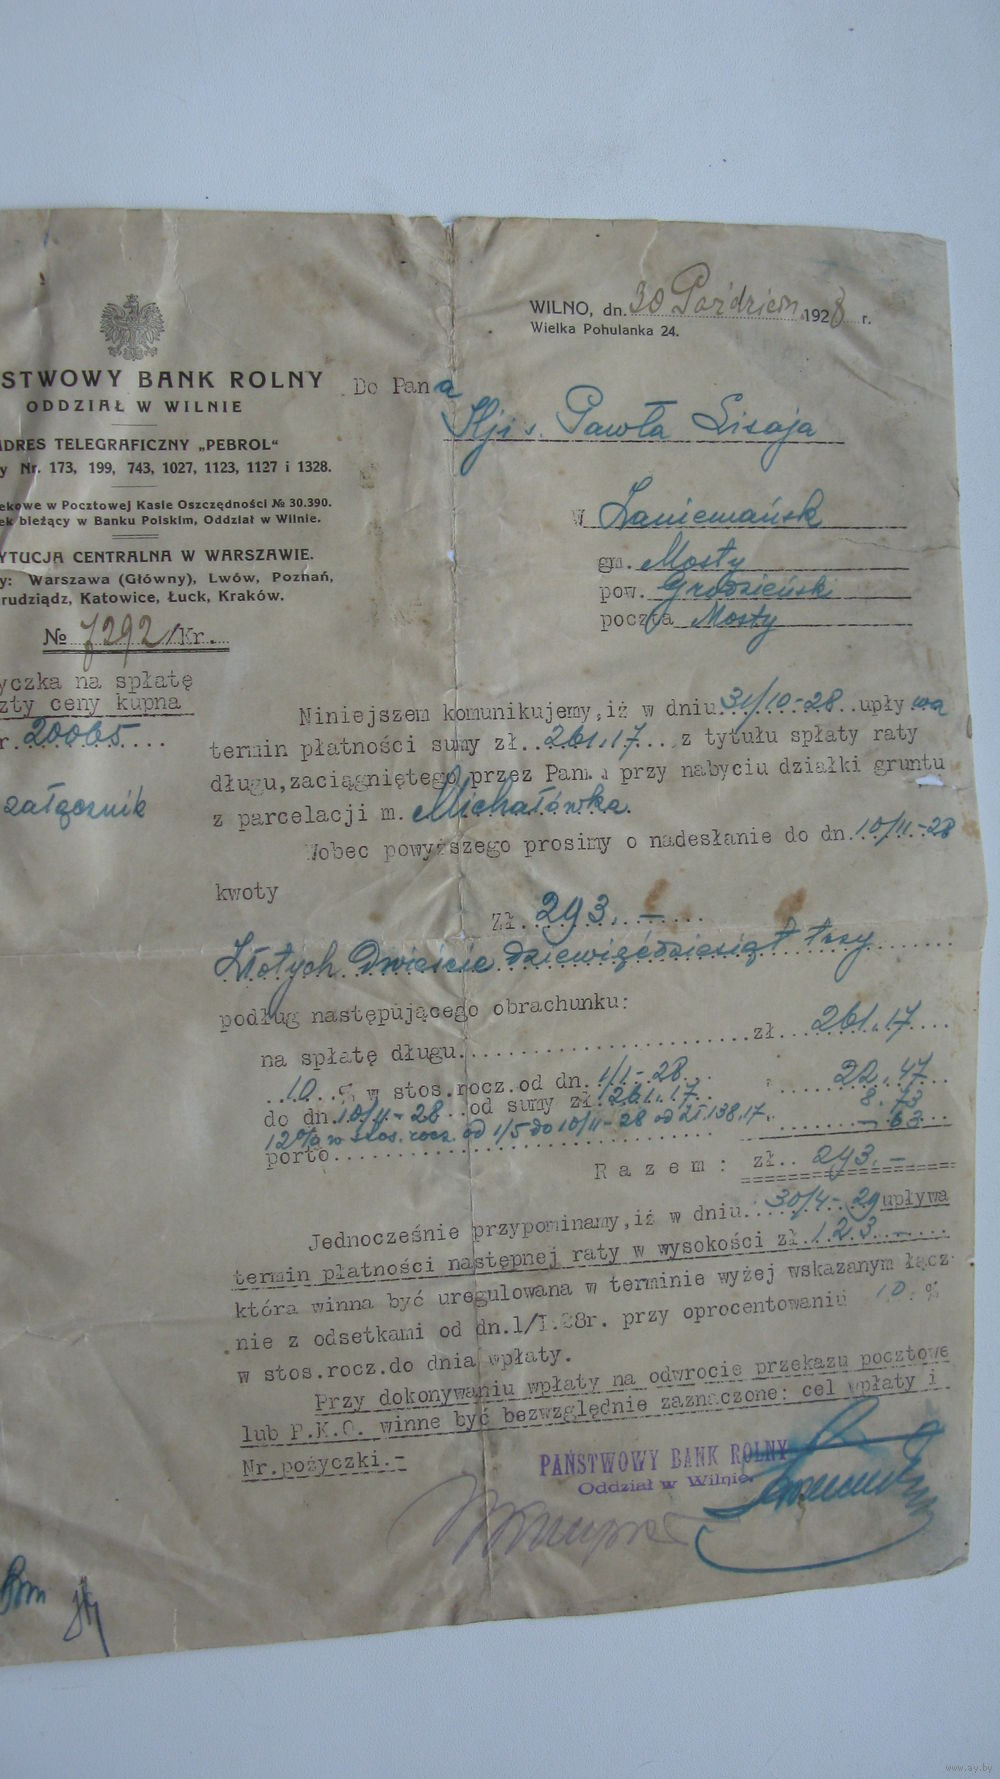 WILNO, dn. 30 Październ. 1928 r.
Wielka Pohulanka 24.
STWOWY BANK ROLNY
ODDZIAŁ W WILNIE
DRES TELEGRAFICZNY „PEBROL“
y Nr. 173, 199, 743, 1027, 1123, 1127 i 1328.
ekowe w Pocztowej Kasie Oszczędności № 30.390.
ek bieżący w Banku Polskim, Oddział w Wilnie.
YTUCJA CENTRALNA W WARSZAWIE.
y: Warszawa (Główny), Lwów, Poznań,
rudziądz, Katowice, Łuck, Kraków.
№ 7292/Kr.
yczka na spłatę
zty ceny kupna
r. 20065....
załącznik
Do Pana
Ilji s. Pawła Lisaja
w Zaniemańsk
gm. Mosty
pow. Grodzieński
poczta Mosty
Niniejszem komunikujemy, iż w dniu 31/10-28..upływa
termin płatności sumy zł..261.17...z tytułu spłaty raty
długu, zaciągniętego przez Pana przy nabyciu działki gruntu
z parcelacji m. Michałówka.
Wobec powyższego prosimy o nadesłanie do dn. 10/11-28
kwoty
Zł. 293.-
Złotych Dwieście dziewięćdziesiąt trzy
podług następującego obrachunku:
na spłatę długu....zł...261.17
10 % w stos.rocz.od dn. 1/1-28... 22.47
do dn. 10/11-28..od sumy zł. 261.17. 8.73
12% w stos. rocz. od 1/5 do 10/11-28 od zł 138.17
porto... -63
Razem: zł.. 293.-
Jednocześnie przypominamy, iż w dniu 30/4-29 upływa
termin płatności następnej raty w wysokości zł. 123.-
która winna być uregulowana w terminie wyżej wskazanym łącz-
nie z odsetkami od dn.1/I.28r. przy oprocentowaniu 10.%
w stos.rocz.do dnia wpłaty.
Przy dokonywaniu wpłaty na odwrocie przekazu pocztowe
lub P.K.O. winne być bezwzględnie zaznaczone: cel wpłaty i
Nr.pożyczki.-
PAŃSTWOWY BANK ROLNY
Oddział w Wilnie.
www.ay.by